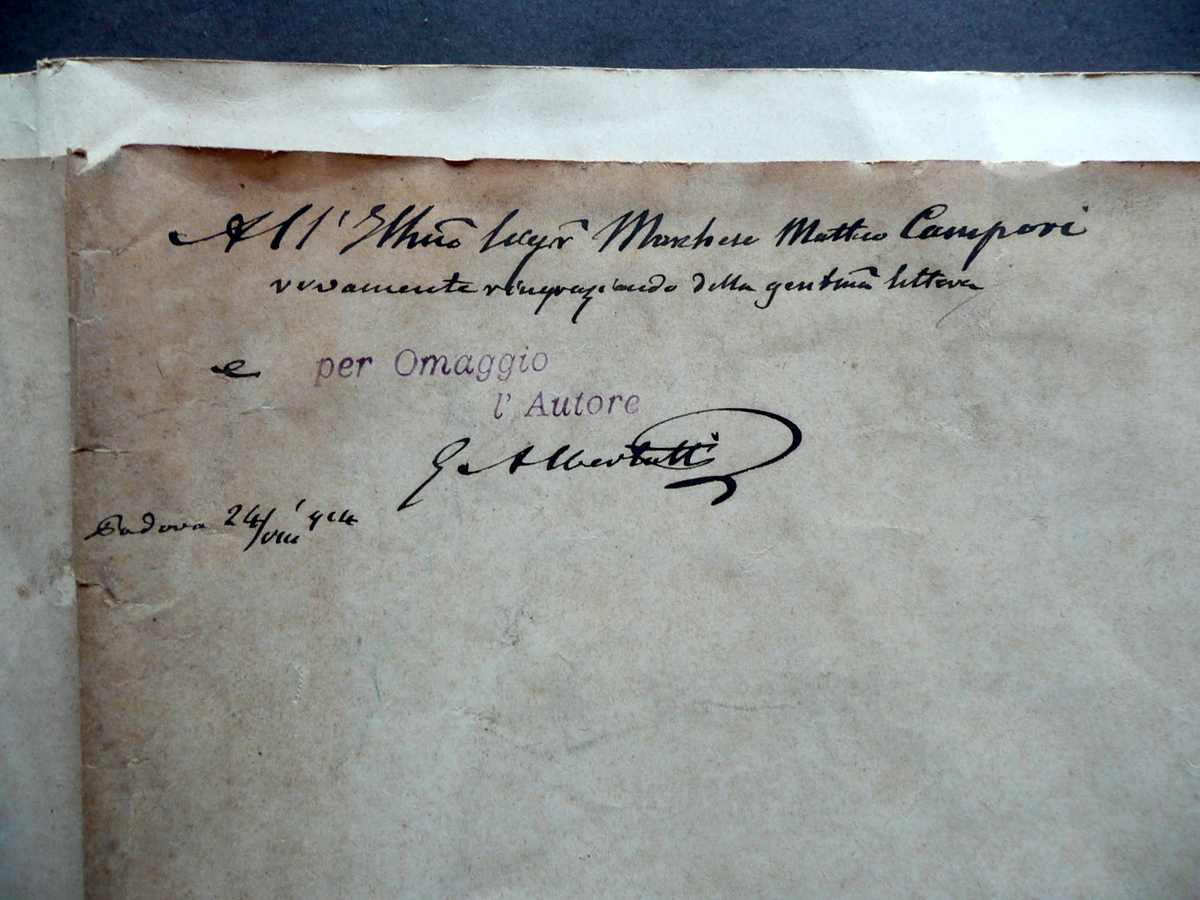 All' Illmo Sigr Marchese Matteo Campori
vivamente ringraziando della gentma lettera
e per Omaggio
l' Autore
G. Albertotti
Padova 24/VIII 914